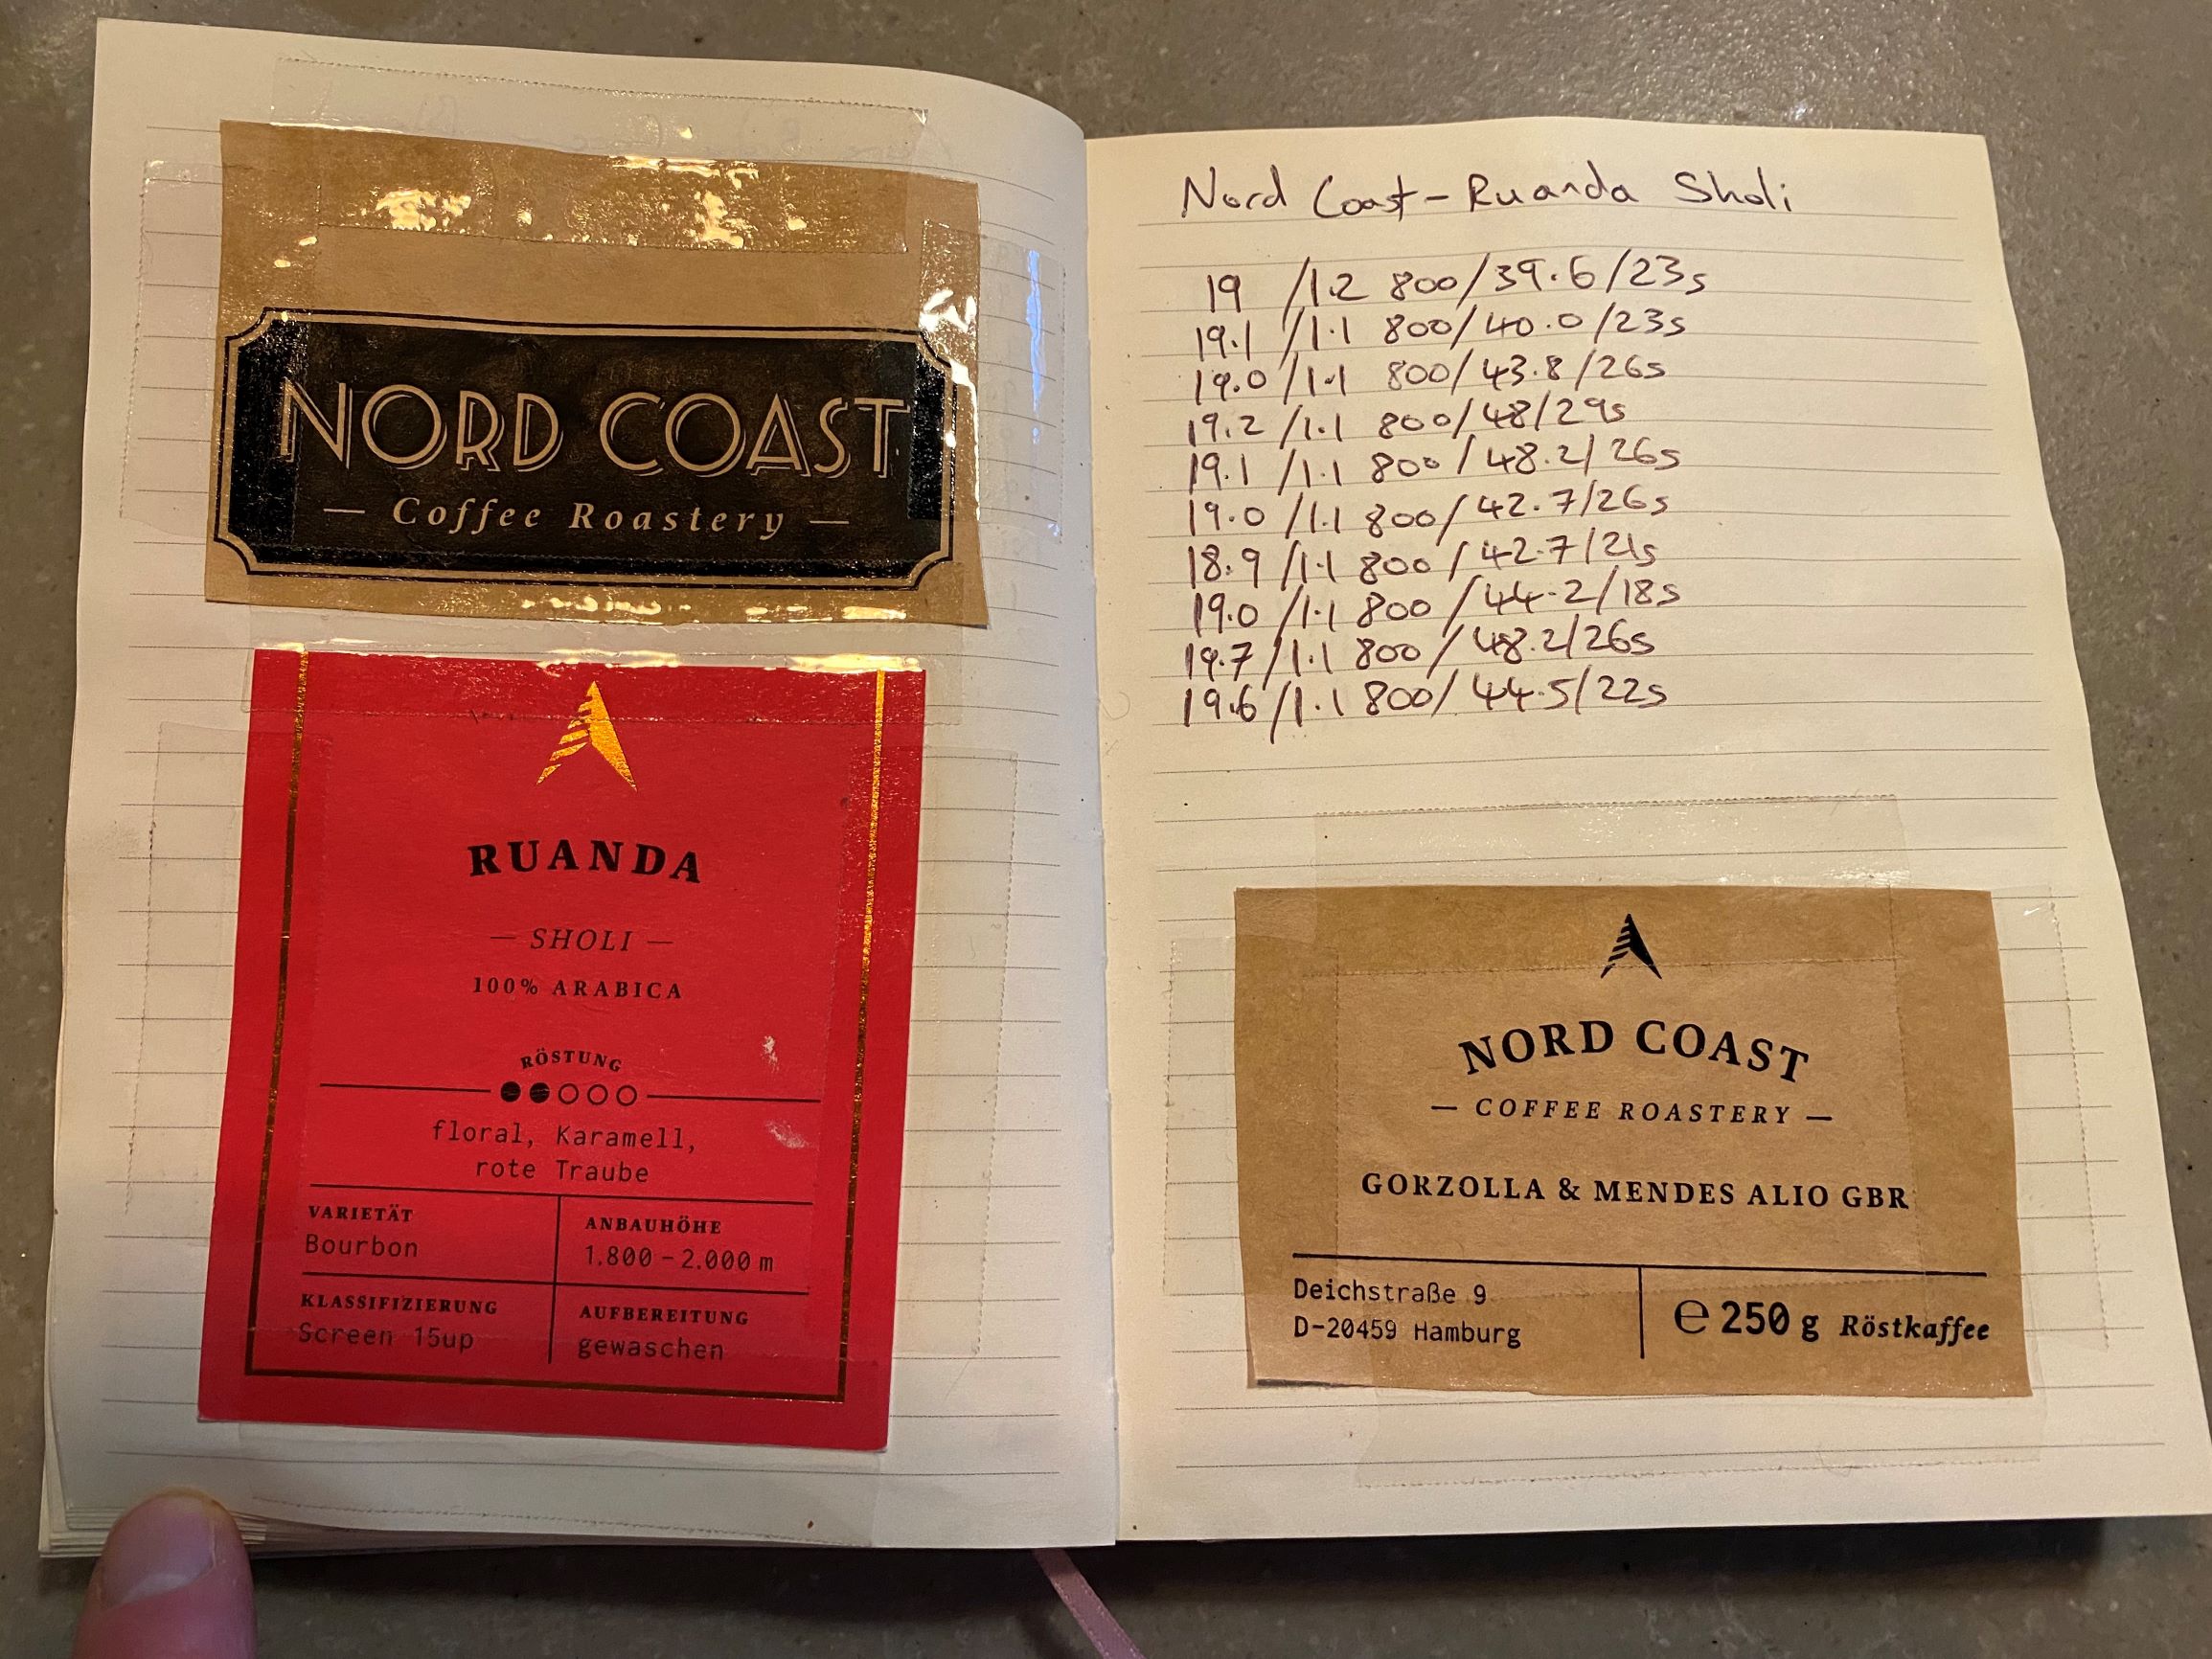 NORD COAST
— Coffee Roastery —
RUANDA
— SHOLI —
100% ARABICA
RÖSTUNG
floral, Karamell,
rote Traube
VARIETÄT
Bourbon
ANBAUHÖHE
1.800 – 2.000 m
KLASSIFIZIERUNG
Screen 15up
AUFBEREITUNG
gewaschen
Nord Coast - Ruanda Sholi
19 /1.2 800/39.6/23s
19.1 /1.1 800/40.0/23s
19.0 /1.1 800/43.8/26s
19.2 /1.1 800/48/29s
19.1 /1.1 800/48.2/26s
19.0 /1.1 800/42.7/26s
18.9 /1.1 800/42.7/21s
19.0 /1.1 800/44.2/18s
19.7/1.1 800/48.2/26s
19.6/1.1 800/44.5/22s
NORD COAST
— COFFEE ROASTERY —
GORZOLLA & MENDES ALIO GBR
Deichstraße 9
D-20459 Hamburg
℮ 250 g Röstkaffee